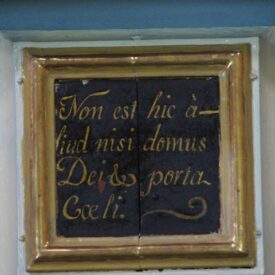 Non est hic à—
liud nisi domus
Dei & porta
Cœli.